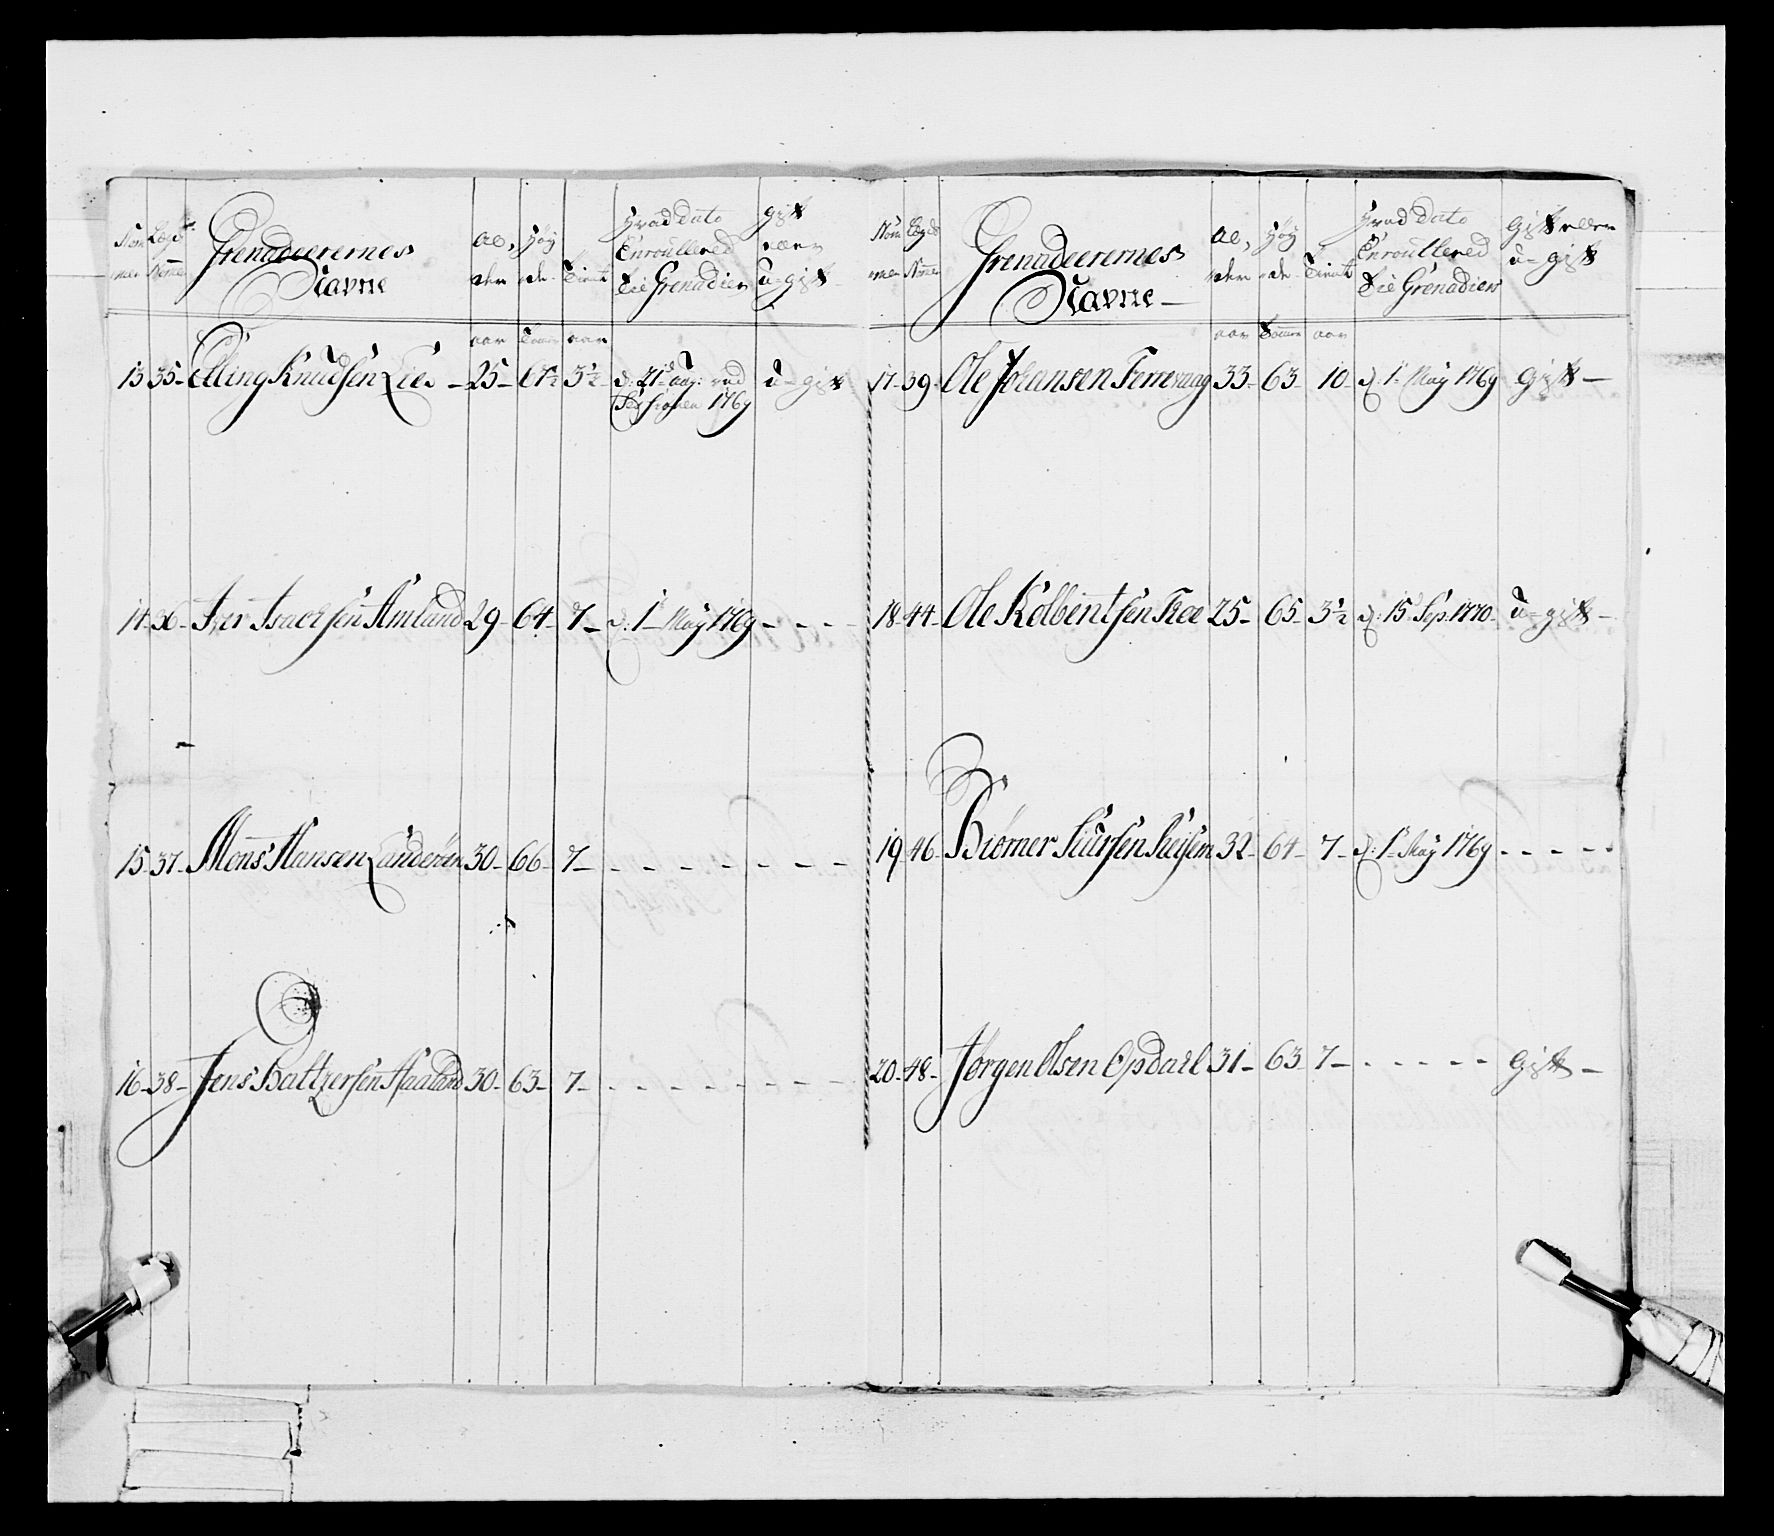 Nom mer Lægds Nomer Grenadeerernes Navne Al, der Høy de Tient Hvad Dato Enroulleved Til Grenadier Gift eller U=gift
aar Tomer aar
13 35 - Elling Knudsen Lie - 25 - 67½ 3½ d. 21 Aug: ved 1769 U=gift
14 - 36 - Iver Isaachsen Amland 29 - 64 - 7 - d: 1 May 1769 - - - -
15 - 37 - Mons Hansen Landerøen 30 - 66 - 7 - - - - - - - - -
16 - 38 - Jens Baltzersen Haaland 30 - 63 - 7 - - - - - - - - -
Nom mer Lægds Nomer Grenadeerernes Navne - Al, der Høy de Tient Hvad Dato Enroulleved Til Grenadier Gift eller U=gift
aar Tomer aar
17 - 39 - Ole Johansen Ferrevaag 33 - 63 10 - d 1 May 1769 Gift -
18 - 44 - Ole Kolbentsen Tree 25 - 65 - 3½ d: 15 Sep. 1770 - U=gift -
19 46 - Biørner Siursen 32 - 64 - 7 - d: 1 May 1769 - - - - -
20 - 48 - Jørgen Olsen Opdall 31 - 63 7 - - - - - - Gift -